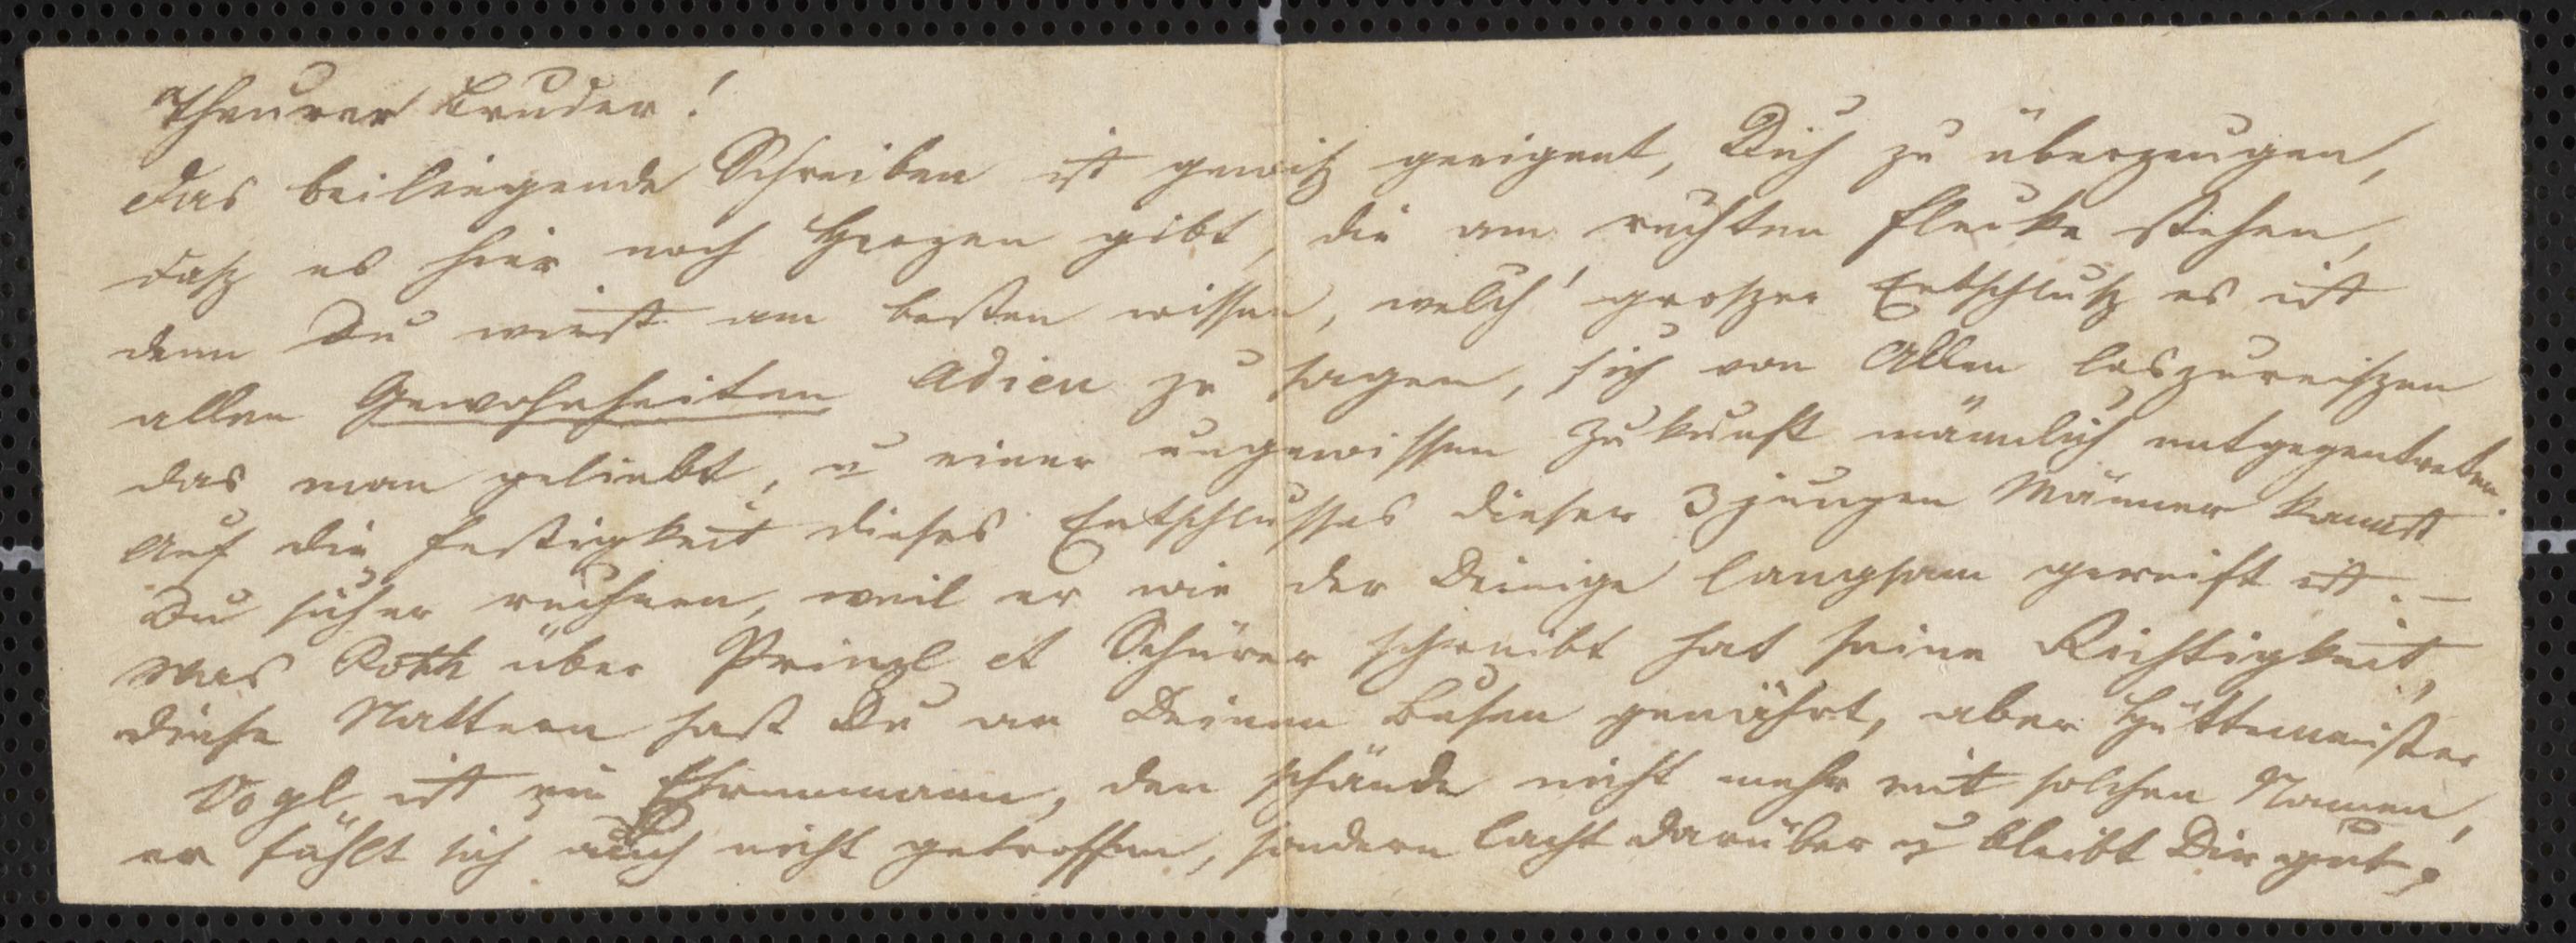 Theurer Bruder!
Das beiliegende Schreiben ist gewiß geeignet, Dich zu überzeugen,
daß es hier noch Herzen gibt, die am rechten Flecke stehen,
denn Du wirst am besten wissen, welch' großer Entschluß es ist
allen Gewohnheiten Adieu zu sagen, sich von Allen loszureißen
das man geliebt, u einer ungewissen Zukunft männlich entgegentreten.
Auf die Festigkeit dieses Entschlusses dieser 3 jungen Männer kannst
Du sicher rechnen, weil er wie der Deinige langsam gereift ist. –
Was Roth über Prinzl et Schürer schreibt hat seine Richtigkeit,
diese Nattern hast Du an Deinem Busen genährt, aber Hüttemeister
Vogl ist ein Ehrenmann, den schände nicht mehr mit solchen Namen,
er fühlt sich auch nicht getroffen, sondern lacht darüber u bleibt Dir gut,